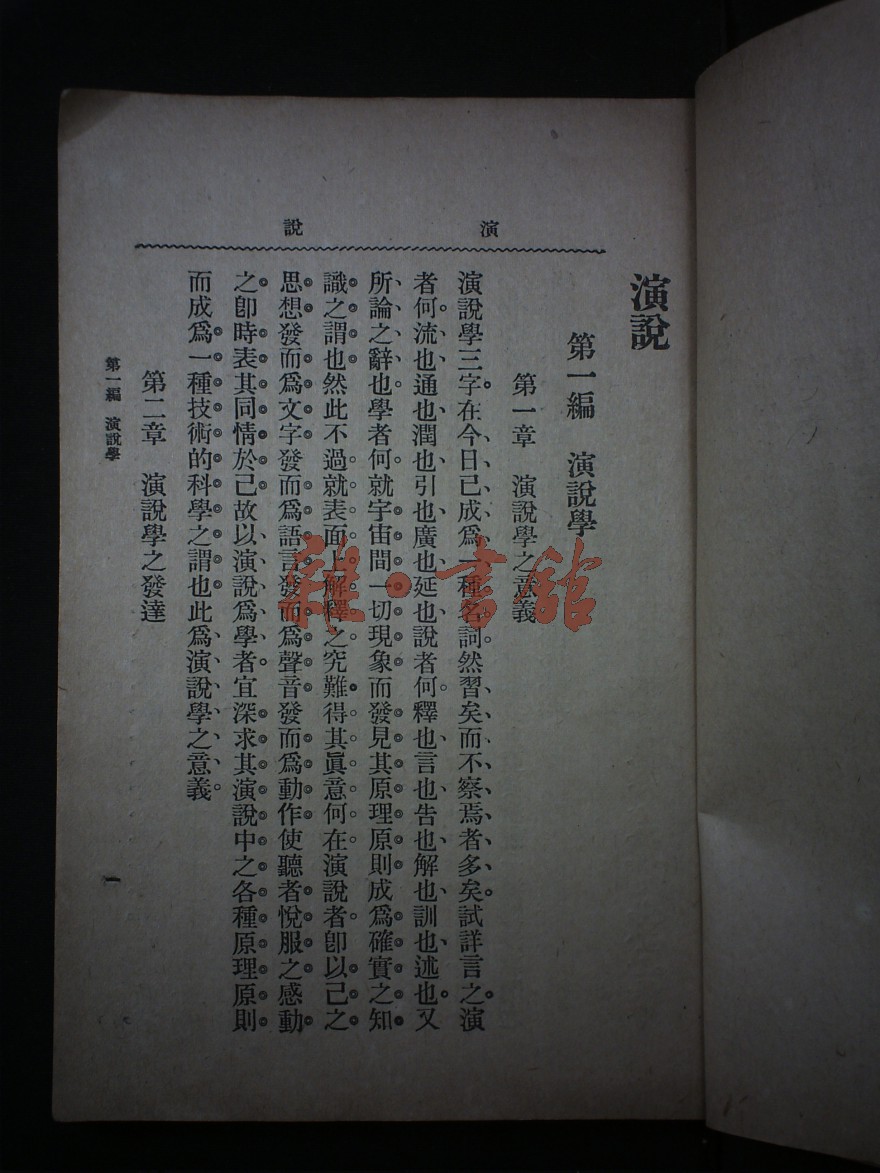 演說
演說
第一編　演說學
第一章　演說學之意義
演說學三字。在今日已成爲一種名詞。然習矣而不察焉者多矣。試詳言之。演
者何。流也、通也、潤也、引也、廣也、延也、說者何。釋也、言也、告也、解也、訓也、述也。又
所論之辭也。學者何。就宇宙間一切現象。而發見其原理原則。成爲確實之知
識之謂也。然此不過就表面上解釋之。究難得其眞意何在。演說者。卽以己之
思想發而爲文字。發而爲語言。發而爲聲音。發而爲動作。使聽者悅服之感動
之。卽時表其同情於己。故以演說爲學者。宜深求其演說中之各種原理原則。
而成爲一種技術的科學之謂也。此爲演說學之意義。
第二章　演說學之發達
第一編　演說學
一
雜·書館